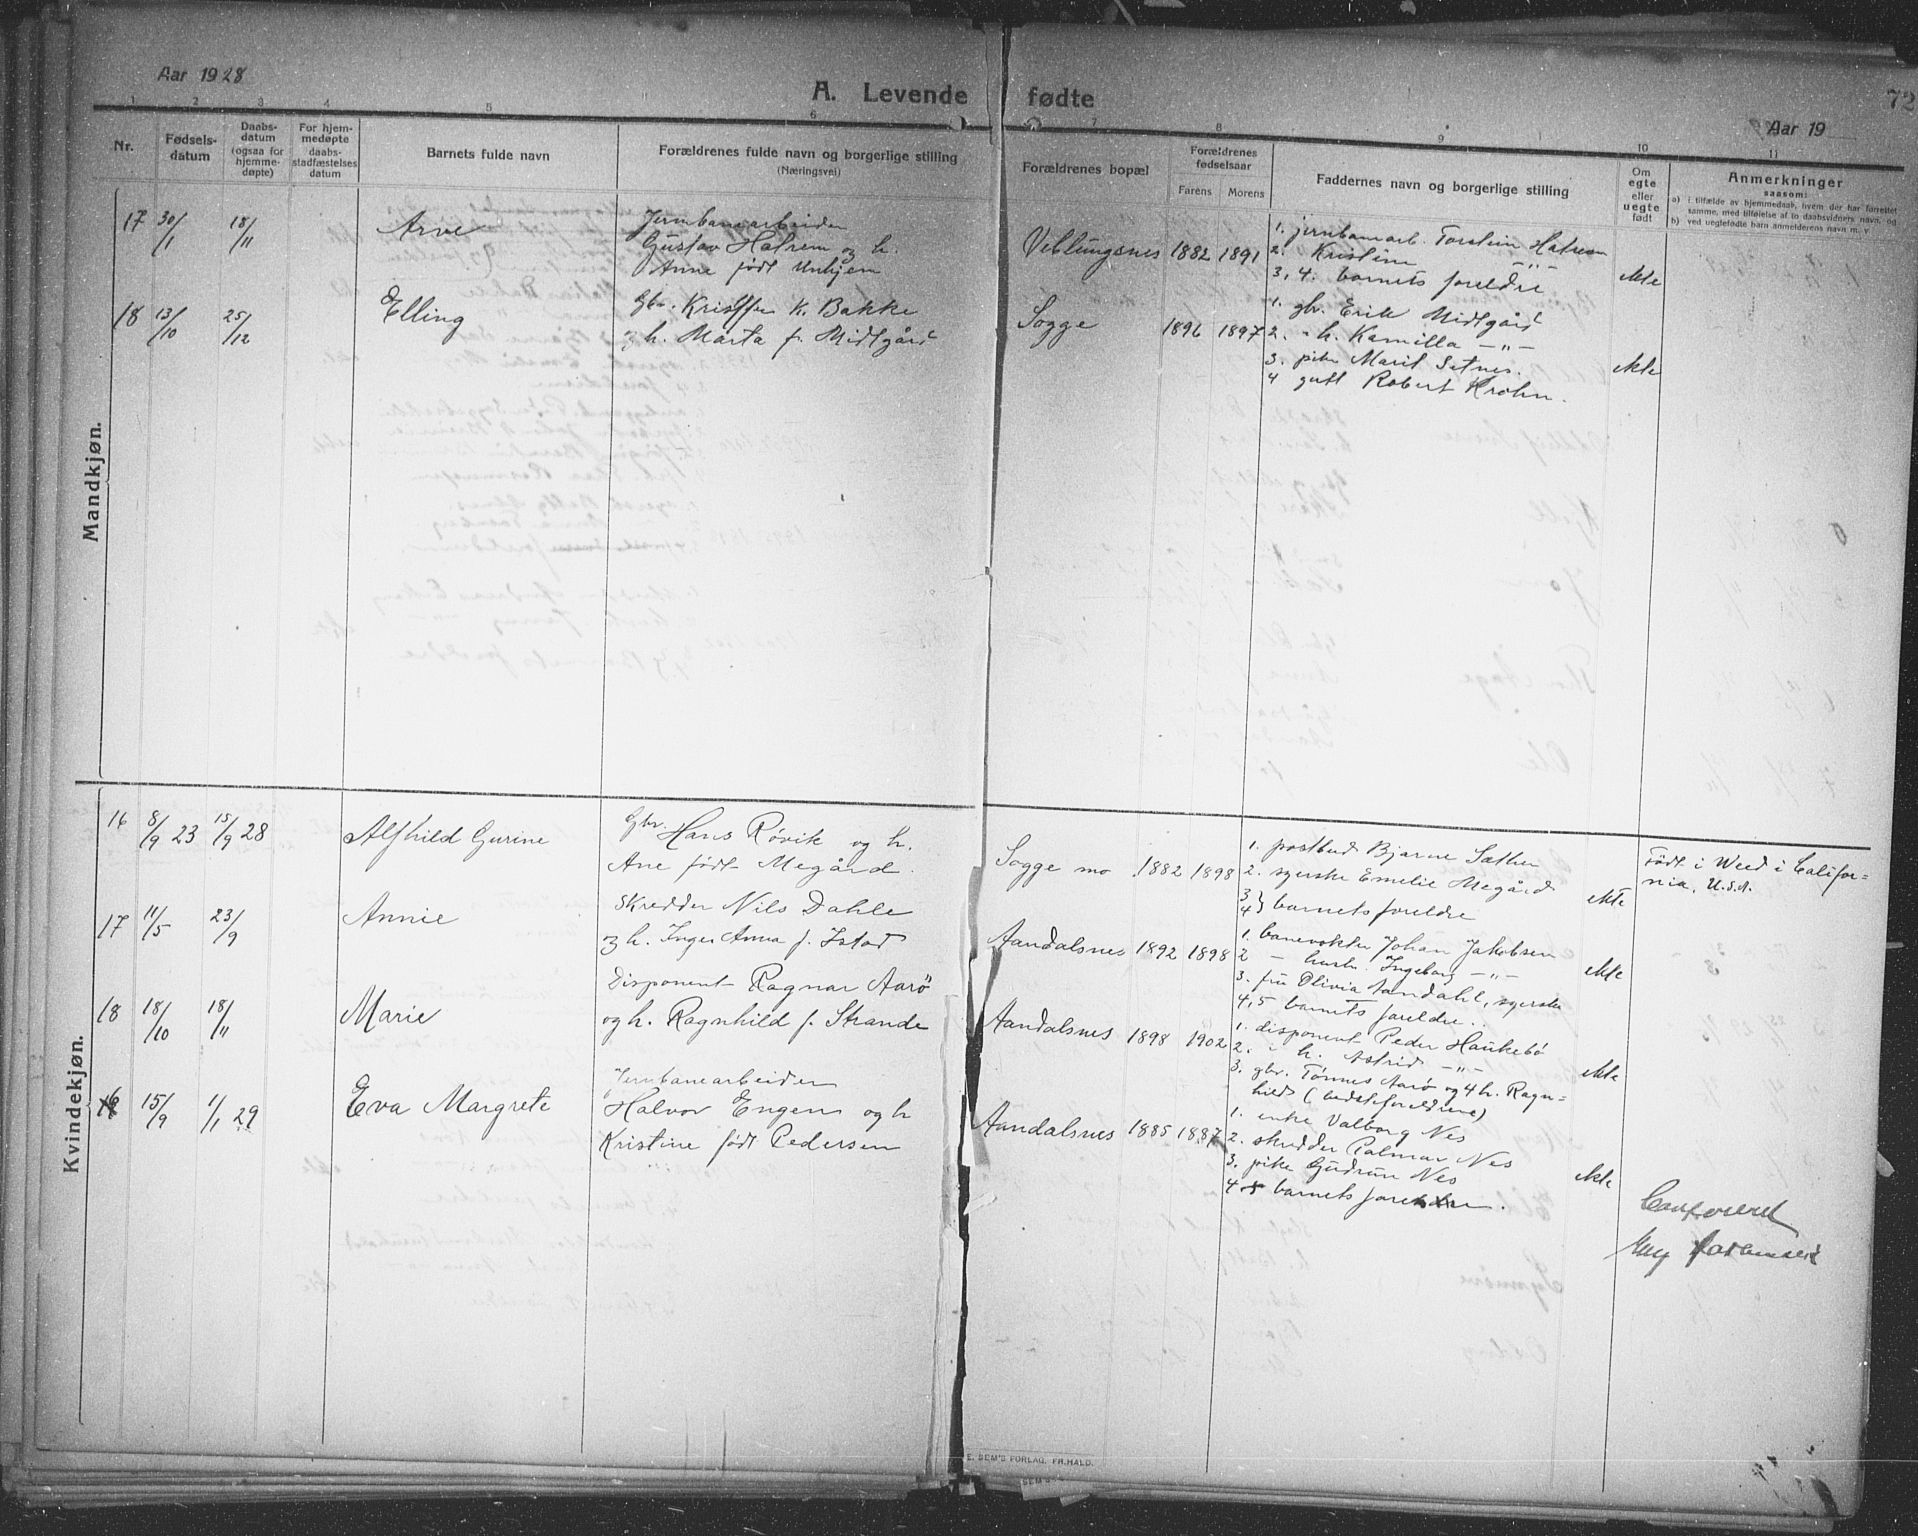 Aar 1928
A. Levende fødte
72
Aar 19
1 2 3 4 5 6 7 8 9 10 11
Nr.
Fødsels-
datum
Daabs-
datum
(ogsaa for
hjemme-
døpte)
For hjem-
medøpte
daabs-
stadfæstelses
datum
Barnets fulde navn
Forældrenes fulde navn og borgerlige stilling
(Næringsvei)
Forældrenes bopæl
Forældrenes
fødselsaar
Farens Morens
Faddernes navn og borgerlige stilling
Om
egte
eller
uegte
født
Anmerkninger
saasom:
a) i tilfælde av hjemmedaab, hvem der har forrettet
samme, med tilføielse af to daabsvidners navn, og
b) ved uegtefødte barn anmelderens navn m. v.
Mandkjøn.
17 30/1 18/11 Arve
Jernbanearbeider
Gustav Hatrem og h.
Anne født Unhjem
Veblungsnes 1882 1891
1. jernbanearb. Torstein Hatrem
2. Kristine —"—
3, 4. barnets foreldre
ekte
18 13/10 25/12 Elling
Gbr. Kristffer K. Bakke
og h. Marta f. Midtgård
Sogge 1896 1897
1. gbr. Erik Midtgård
2. - h. Kamilla —"—
3. pike Marit Setnes.
4 gutt Robert Krohn.
ekte
Kvindekjøn.
16 8/9 23 15/9 28 Alfhild Gurine
Gbr. Hans Røvik og h.
Ane født Megård.
Sogge mo 1882 1898
1. postbud Bjarne Sæther
2. syerske Emelie Megård
3
4} barnets foreldre
ekte
Født i Weed i Califor=
nia, U.S.A.
17 11/5 23/9 Annie
Skredder Nils Dahle
og h. Inger Anna f. Istad
Aandalsnes 1892 1898
1. banevokter Johan Jakobsen
2 - hustr. Ingeborg —"—
3. fru Olivia Aandahl, syerske
4, 5 barnets foreldre..
ekte
18 18/10 18/11 Marie
Disponent Ragnar Aarö
og h. Ragnhild f. Strande
Aandalsnes 1898 1902
1. disponent Peder Haukebö
2. - h. Astrid —"—
3. gbr. Tönnes Aarö og 4 h. Ragn=
hild (bedsteforeldrene)
ekte
15/9 11/1 29 Eva Margrete
Jernbanearbeider
Halvor Engen og h
Kristine født Pedersen
Aandalsnes 1885 1887
1. enke Valborg Nes
2. skredder Palmar Nes
3. pike Gudrun Nes
4 5 barnets foreldre.
ekte
Confereret
E. SEM'S FORLAG, FR.HALD.
SEM'S